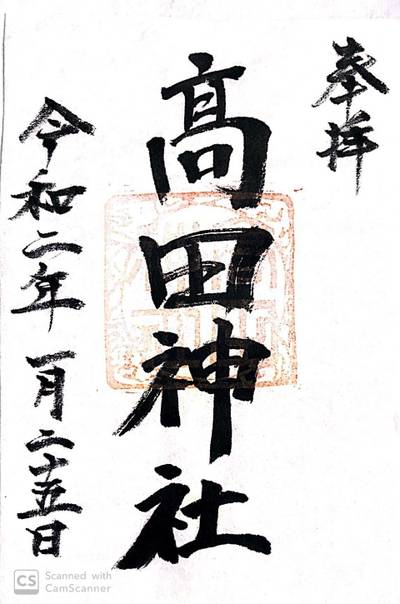 奉拝
高田神社
令和二年一月二十五日
CS Scanned with
CamScanner